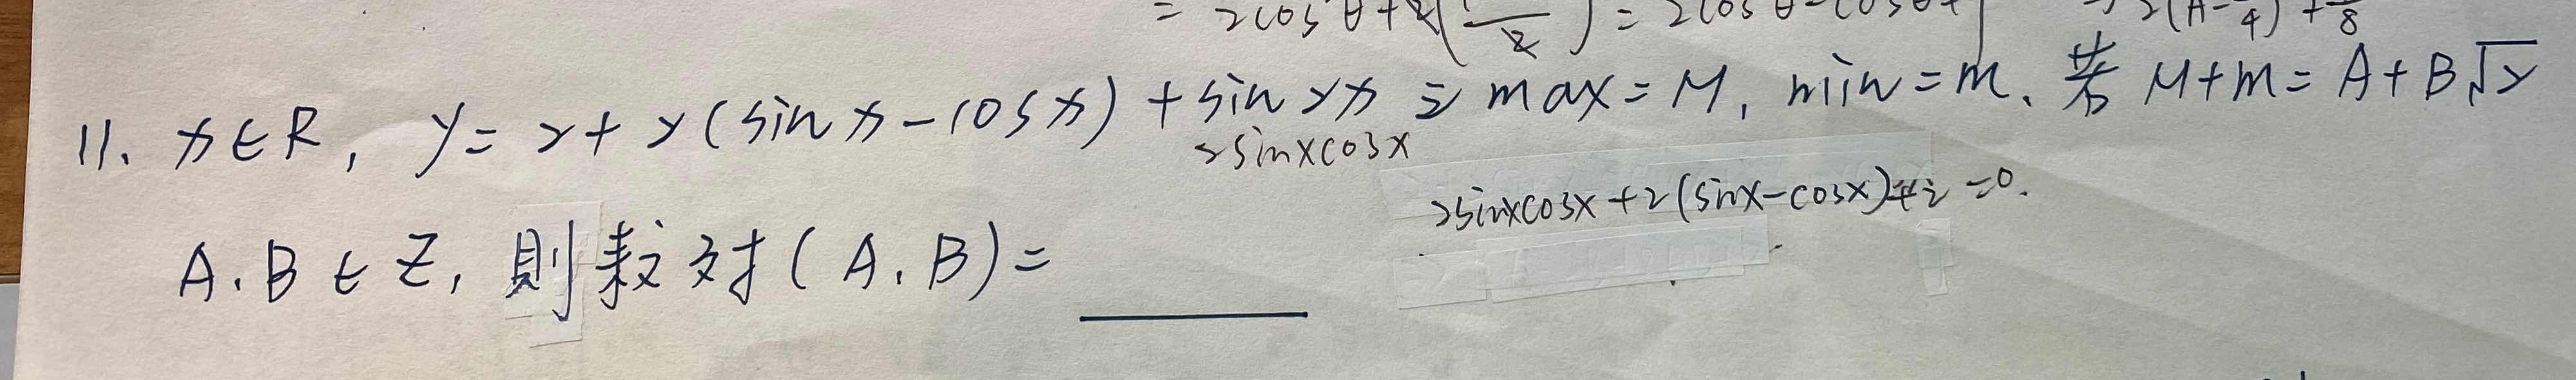 = 2cos²θ+2( /2) = 2cos²θ-cosθ+1 → 2(A-1/4)²+7/8
11. x∈R, y=2+2(sinx-cosx)+sin2x 之 max=M, min=m. 若 M+m=A+B√2
2sinxcosx
2sinxcosx+2(sinx-cosx)+2=0.
A.B∈Z, 則数对(A.B)=